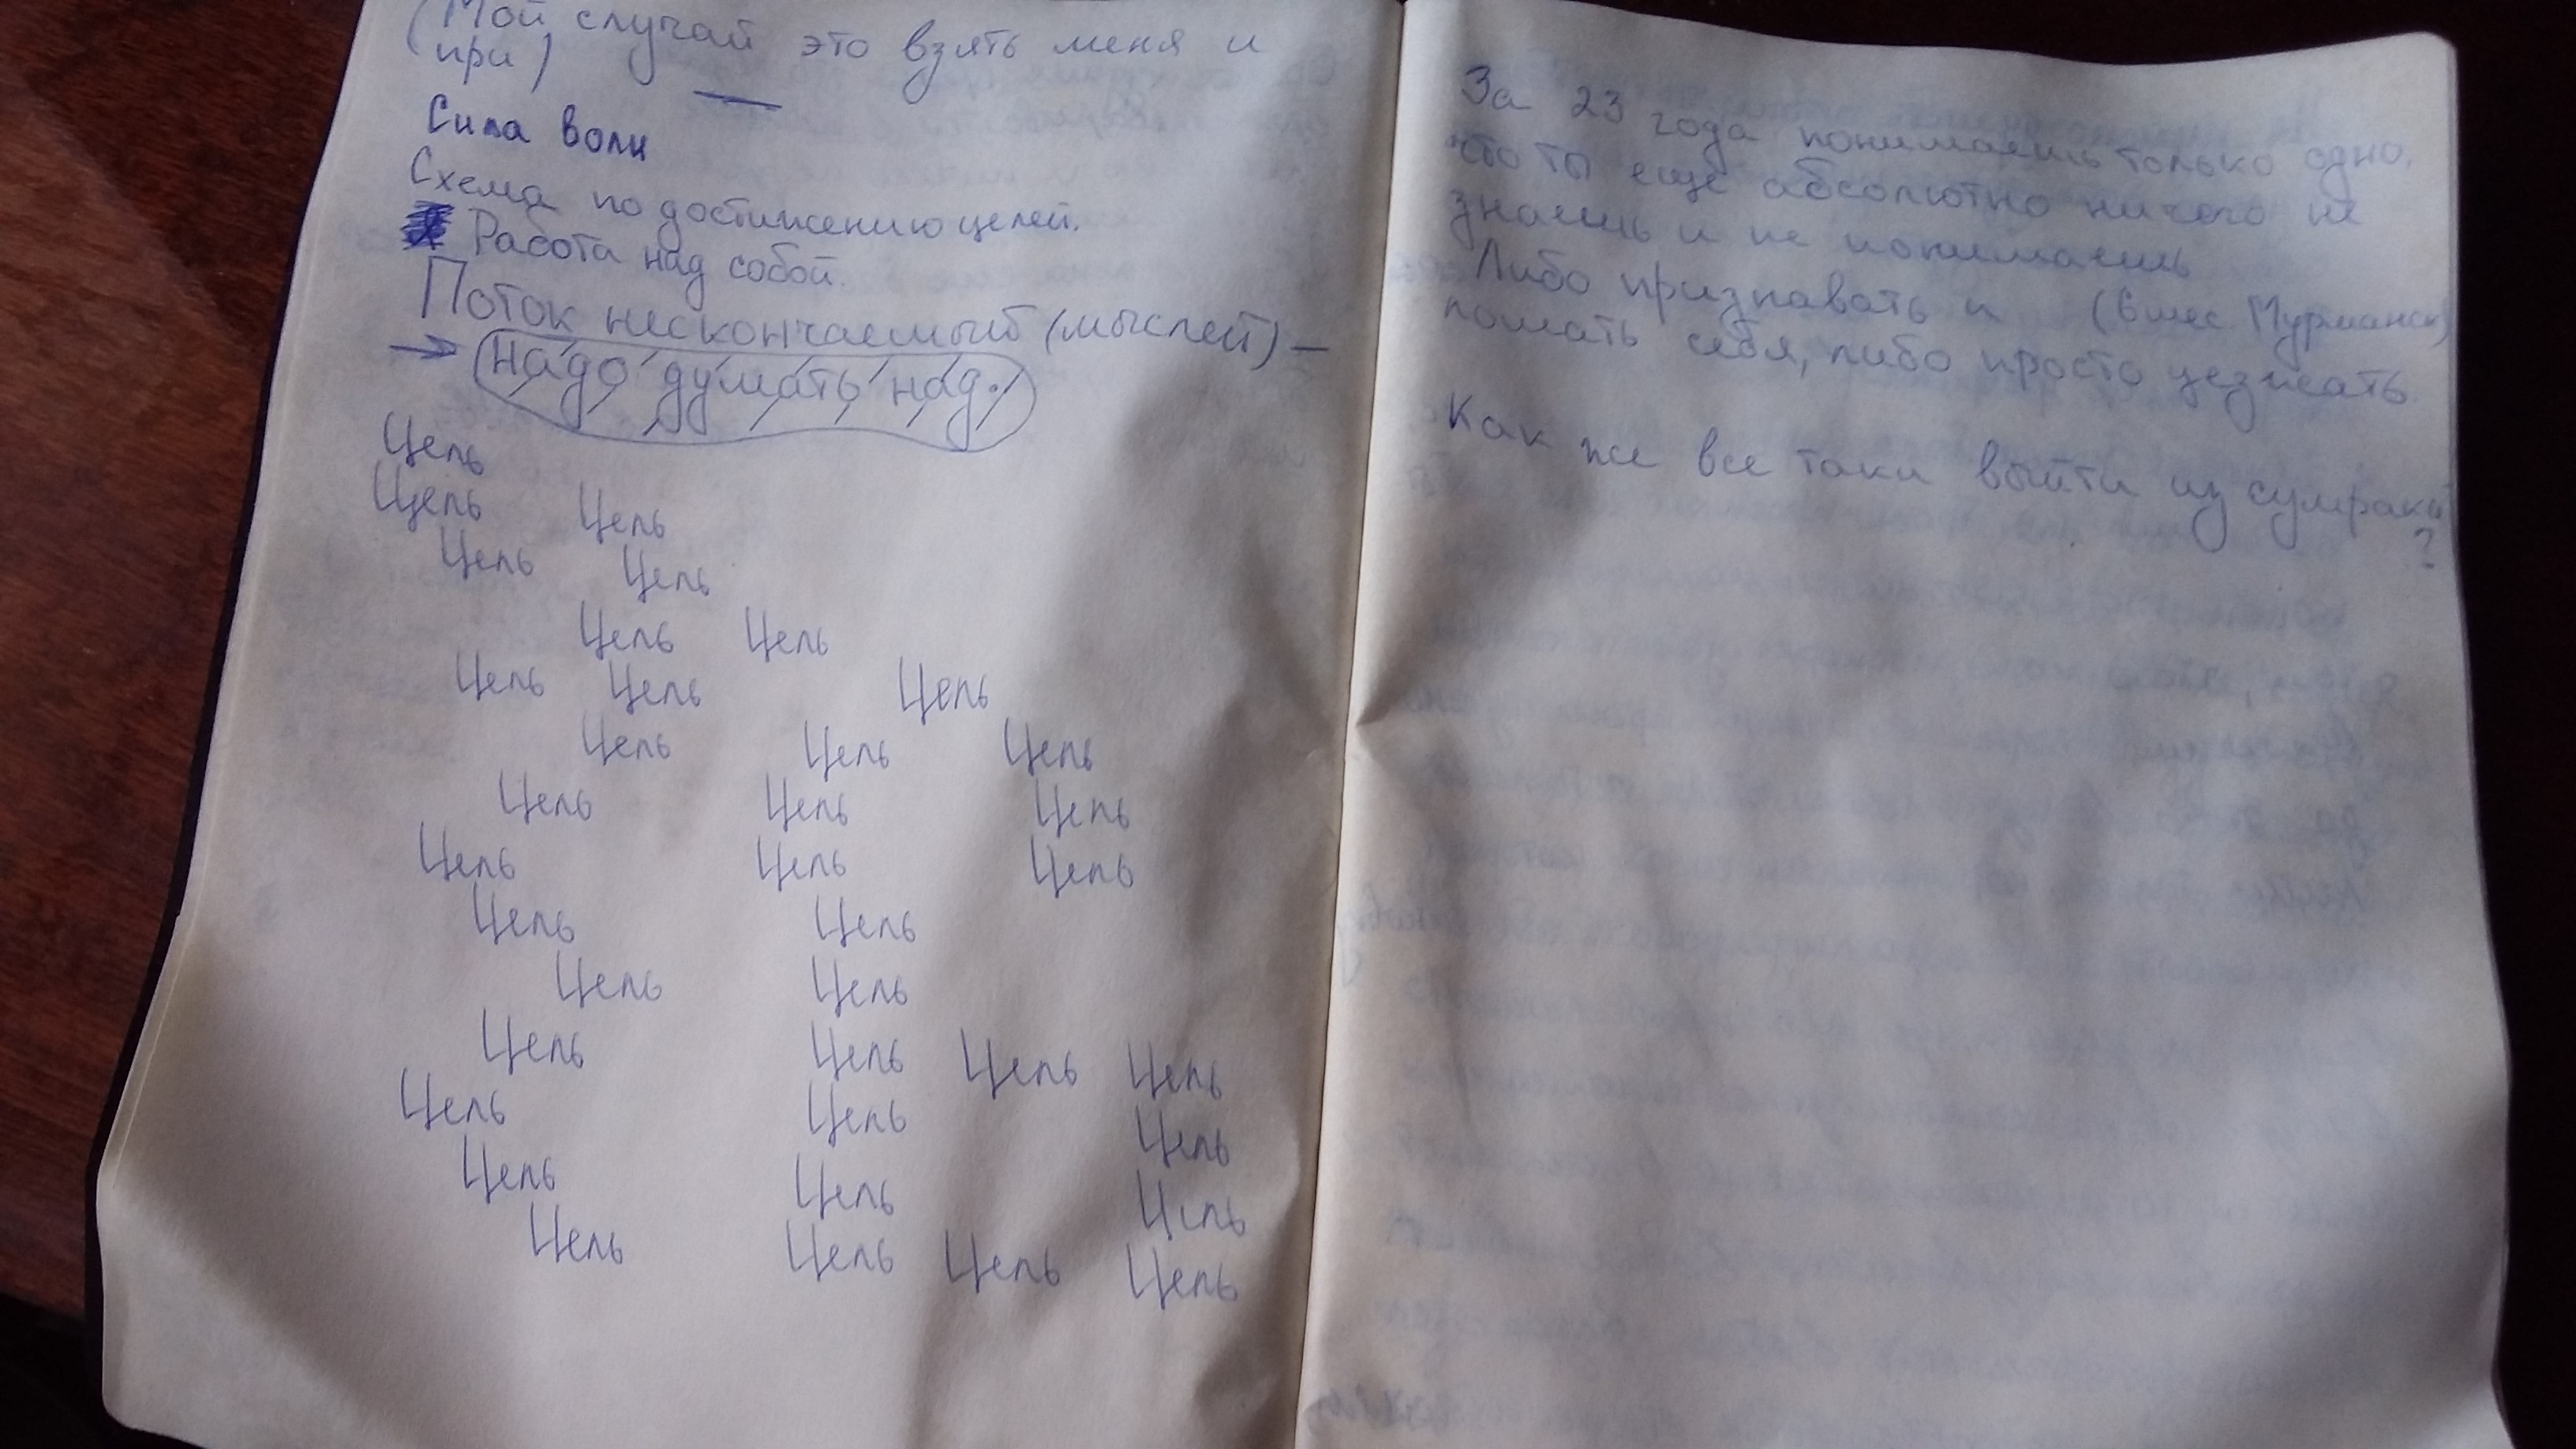 (Мой случай это взять меня и
при)
Сила воли
Схема по достижению целей.
Работа над собой.
Поток нескончаемый (мыслей) –
→ надо думать над.
Цель
Цель Цель
Цель Цель
Цель Цель
Цель Цель Цель
Цель Цель Цель
Цель Цель Цель
Цель Цель Цель
Цель Цель
Цель Цель
Цель Цель Цель Цель
Цель Цель Цель
Цель Цель Цель
Цель Цель Цель Цель
За 23 года понимаешь только одно,
что ты еще абсолютно ничего не
знаешь и не понимаешь
Либо признавать и (6 мес. Мурманск)
ломать себя, либо просто уезжать.
Как же все таки выйти из сумрака
?